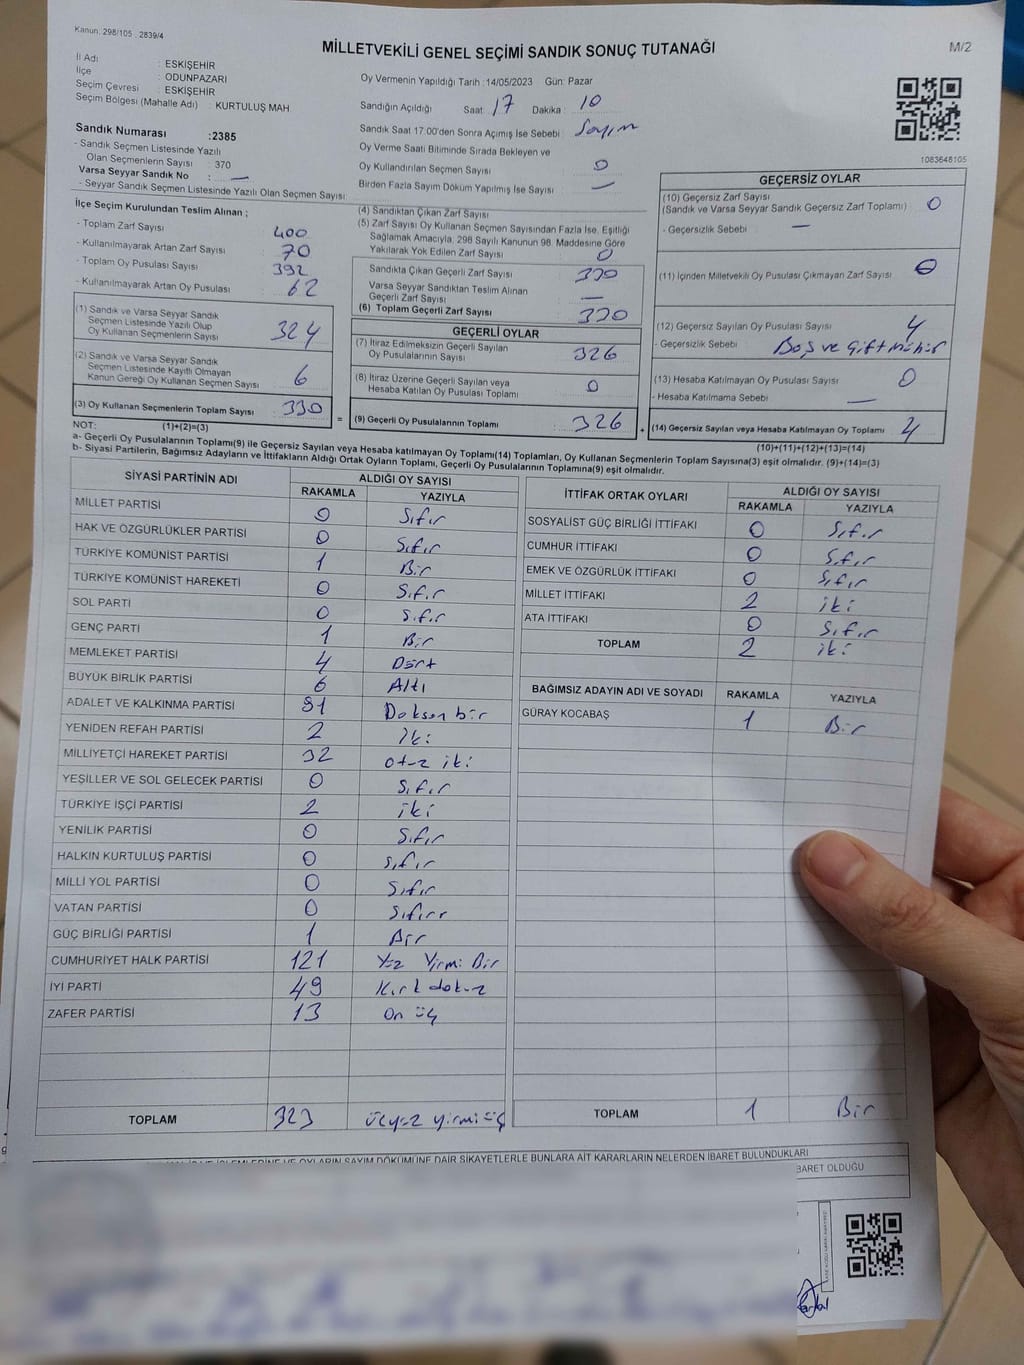 Kanun: 298/105 2839/4
MİLLETVEKİLİ GENEL SEÇİMİ SANDIK SONUÇ TUTANAĞI
M/2
İl Adı : ESKİŞEHİR
İlçe : ODUNPAZARI
Seçim Çevresi : ESKİŞEHİR
Seçim Bölgesi (Mahalle Adı) : KURTULUŞ MAH.
Oy Vermenin Yapıldığı Tarih : 14/05/2023 Gün: Pazar
Sandığın Açıldığı Saat : 17 Dakika : 10
Sandık Saat 17.00'den Sonra Açımış İse Sebebi : Sayım
Oy Verme Saati Bitiminde Sırada Bekleyen ve
Oy Kullandırılan Seçmen Sayısı : 0
Birden Fazla Sayım Döküm Yapılmış İse Sayısı : —
1083648105
Sandık Numarası : 2385
- Sandık Seçmen Listesinde Yazılı
Olan Seçmenlerin Sayısı : 370
Varsa Seyyar Sandık No : —
- Seyyar Sandık Seçmen Listesinde Yazılı Olan Seçmen Sayısı:
İlçe Seçim Kurulundan Teslim Alınan ;
- Toplam Zarf Sayısı : 400
- Kullanılmayarak Artan Zarf Sayısı : 70
- Toplam Oy Pusulası Sayısı : 392
- Kullanılmayarak Artan Oy Pusulası : 62
(1) Sandık ve Varsa Seyyar Sandık
Seçmen Listesinde Yazılı Olup
Oy Kullanan Seçmenlerin Sayısı 324
(2) Sandık ve Varsa Seyyar Sandık
Seçmen Listesinde Kayıtlı Olmayan
Kanun Gereği Oy Kullanan Seçmen Sayısı 6
(3) Oy Kullanan Seçmenlerin Toplam Sayısı 330
(4) Sandıktan Çıkan Zarf Sayısı
(5) Zarf Sayısı Oy Kullanan Seçmen Sayısından Fazla İse, Eşitliği
Sağlamak Amacıyla, 298 Sayılı Kanunun 98. Maddesine Göre
Yakılarak Yok Edilen Zarf Sayısı : 0
Sandıkta Çıkan Geçerli Zarf Sayısı 330
Varsa Seyyar Sandıktan Teslim Alınan
Geçerli Zarf Sayısı —
(6) Toplam Geçerli Zarf Sayısı 330
GEÇERLİ OYLAR
(7) İtiraz Edilmeksizin Geçerli Sayılan
Oy Pusulalarının Sayısı 326
(8) İtiraz Üzerine Geçerli Sayılan veya
Hesaba Katılan Oy Pusulası Toplamı 0
= (9) Geçerli Oy Pusulalarının Toplamı 326
GEÇERSİZ OYLAR
(10) Geçersiz Zarf Sayısı
(Sandık ve Varsa Seyyar Sandık Geçersiz Zarf Toplamı) 0
- Geçersizlik Sebebi : —
(11) İçinden Milletvekili Oy Pusulası Çıkmayan Zarf Sayısı 0
(12) Geçersiz Sayılan Oy Pusulası Sayısı 4
- Geçersizlik Sebebi : Boş ve Çift mühür
(13) Hesaba Katılmayan Oy Pusulası Sayısı 0
- Hesaba Katılmama Sebebi : —
+ (14) Geçersiz Sayılan veya Hesaba Katılmayan Oy Toplamı 4
NOT: (1)+(2)=(3)
(10)+(11)+(12)+(13)=(14)
a- Geçerli Oy Pusulalarının Toplamı(9) ile Geçersiz Sayılan veya Hesaba katılmayan Oy Toplamı(14) Toplamları, Oy Kullanan Seçmenlerin Toplam Sayısına(3) eşit olmalıdır. (9)+(14)=(3)
b- Siyasi Partilerin, Bağımsız Adayların ve İttifakların Aldığı Ortak Oyların Toplamı, Geçerli Oy Pusulalarının Toplamına(9) eşit olmalıdır.
SİYASİ PARTİNİN ADI ALDIĞI OY SAYISI
RAKAMLA YAZIYLA
MİLLET PARTİSİ 0 Sıfır
HAK VE ÖZGÜRLÜKLER PARTİSİ 0 Sıfır
TÜRKİYE KOMÜNİST PARTİSİ 1 Bir
TÜRKİYE KOMÜNİST HAREKETİ 0 Sıfır
SOL PARTİ 0 Sıfır
GENÇ PARTİ 1 Bir
MEMLEKET PARTİSİ 4 Dört
BÜYÜK BİRLİK PARTİSİ 6 Altı
ADALET VE KALKINMA PARTİSİ 91 Doksan bir
YENİDEN REFAH PARTİSİ 2 İki
MİLLİYETÇİ HAREKET PARTİSİ 32 otuz iki
YEŞİLLER VE SOL GELECEK PARTİSİ 0 Sıfır
TÜRKİYE İŞÇİ PARTİSİ 2 iki
YENİLİK PARTİSİ 0 Sıfır
HALKIN KURTULUŞ PARTİSİ 0 Sıfır
MİLLİ YOL PARTİSİ 0 Sıfır
VATAN PARTİSİ 0 Sıfırr
GÜÇ BİRLİĞİ PARTİSİ 1 Bir
CUMHURİYET HALK PARTİSİ 121 Yüz Yirmi Bir
İYİ PARTİ 49 Kırk dokuz
ZAFER PARTİSİ 13 On üç
TOPLAM 323 üçyüz yirmi üç
İTTİFAK ORTAK OYLARI ALDIĞI OY SAYISI
RAKAMLA YAZIYLA
SOSYALİST GÜÇ BİRLİĞİ İTTİFAKI 0 Sıfır
CUMHUR İTTİFAKI 0 Sıfır
EMEK VE ÖZGÜRLÜK İTTİFAKI 0 Sıfır
MİLLET İTTİFAKI 2 iki
ATA İTTİFAKI 0 Sıfır
TOPLAM 2 iki
BAĞIMSIZ ADAYIN ADI VE SOYADI RAKAMLA YAZIYLA
GÜRAY KOCABAŞ 1 Bir
TOPLAM 1 Bir
OYLARIN SAYIM DÖKÜMÜNE DAİR ŞİKAYETLERLE BUNLARA AİT KARARLARIN NELERDEN İBARET BULUNDUKLARI
BARET OLDUĞU